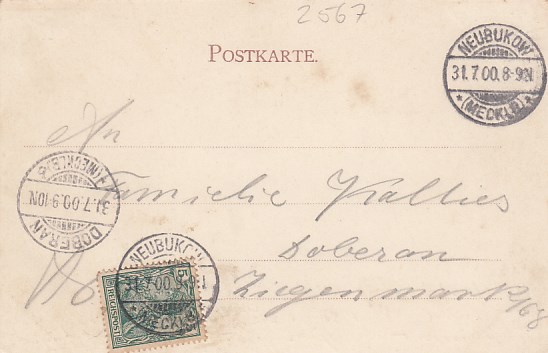 2567
POSTKARTE.
NEUBUKOW
31.7.00.8-9N
*(MECKLB)*
An
Familie Kallies
(MECKLB)
31.7.00.9-10N
DOBERAN
Doberan
NEUBUKOW
31.7.00.8-9N
*(MECKLB)*
Ziegenmarkt
5
REICHSPOST